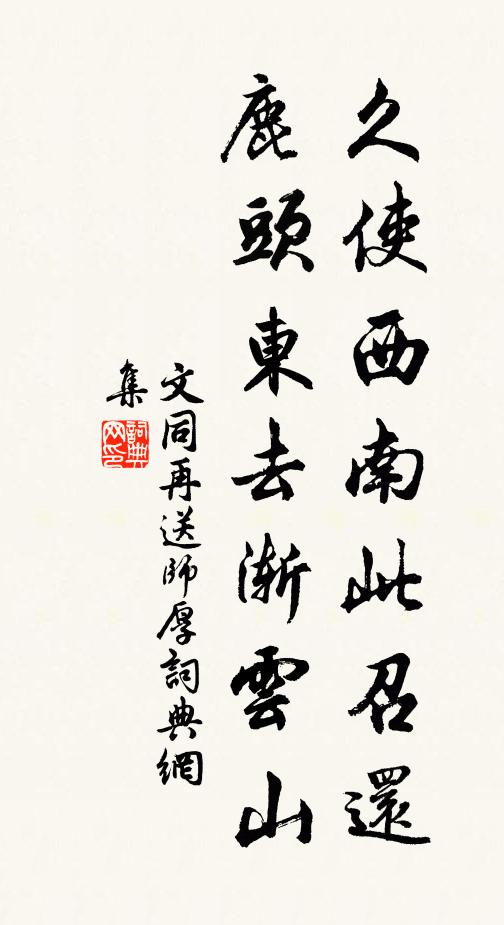 久使西南此召還
鹿頭東去漸雲山
文同再送師厚詞典網
集
詞典
网印